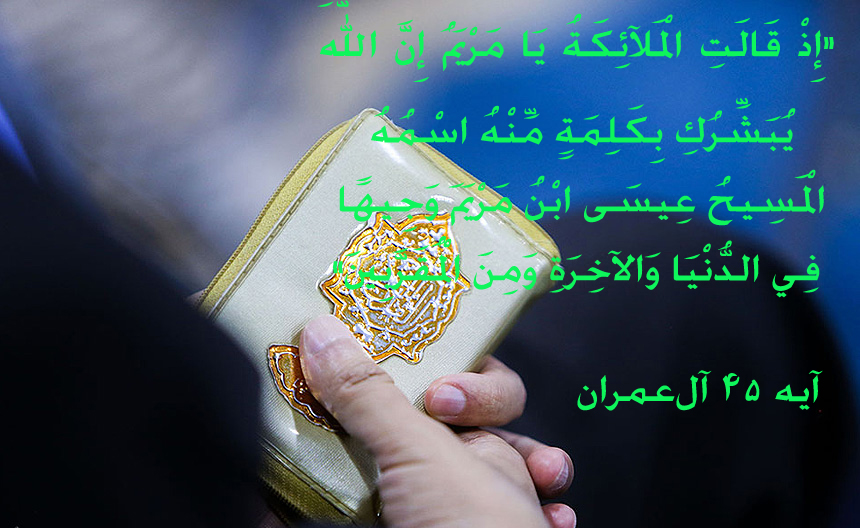 «إِذْ قَالَتِ الْمَلآئِكَةُ يَا مَرْيَمُ إِنَّ اللّهَ
يُبَشِّرُكِ بِكَلِمَةٍ مِّنْهُ اسْمُهُ
الْمَسِيحُ عِيسَى ابْنُ مَرْيَمَ وَجِيهًا
فِي الدُّنْيَا وَالآخِرَةِ وَمِنَ الْمُقَرَّبِينَ»
آیه ۴۵ آل‌عمران